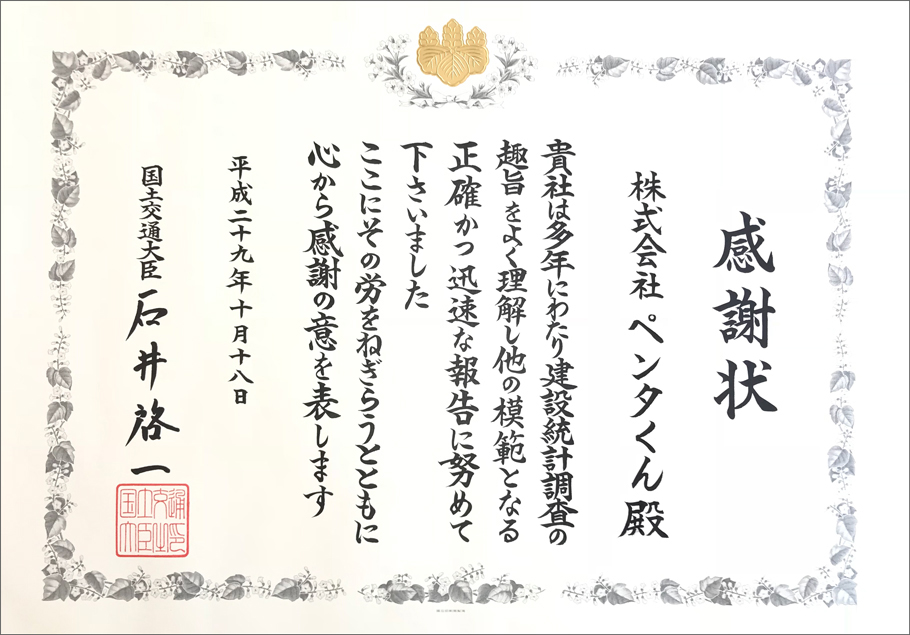 感謝状
株式会社 ペンタくん殿
貴社は多年にわたり建設統計調査の
趣旨をよく理解し他の模範となる
正確かつ迅速な報告に努めて
下さいました
ここにその労をねぎらうとともに
心から感謝の意を表します
平成二十九年十月十八日
国土交通大臣 石井啓一